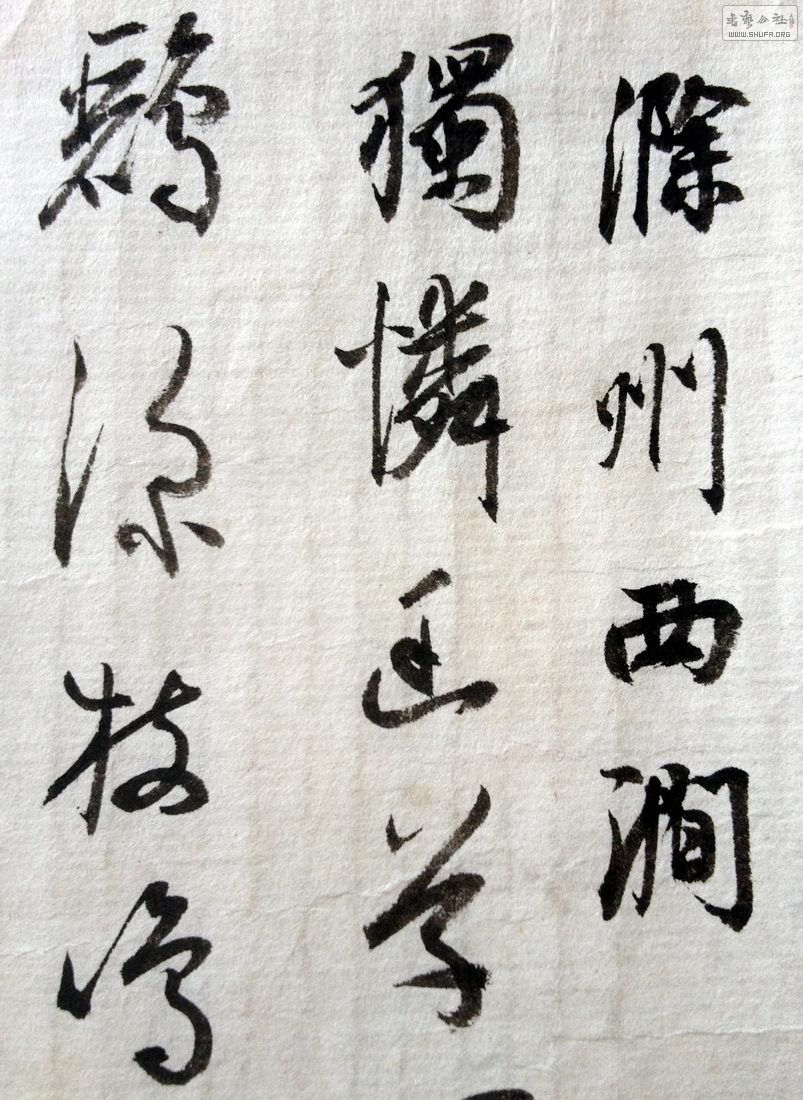 滁州西澗
獨憐幽草
鸝深枝鳴
書藝公社
WWW.SHUFA.ORG